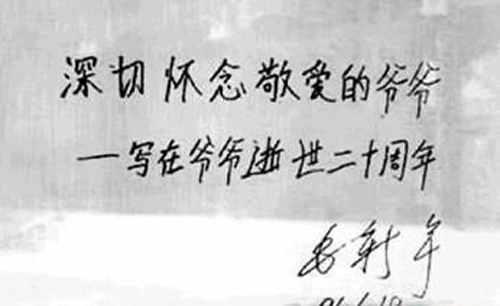 深切怀念敬爱的爷爷
—写在爷爷逝世二十周年
新年